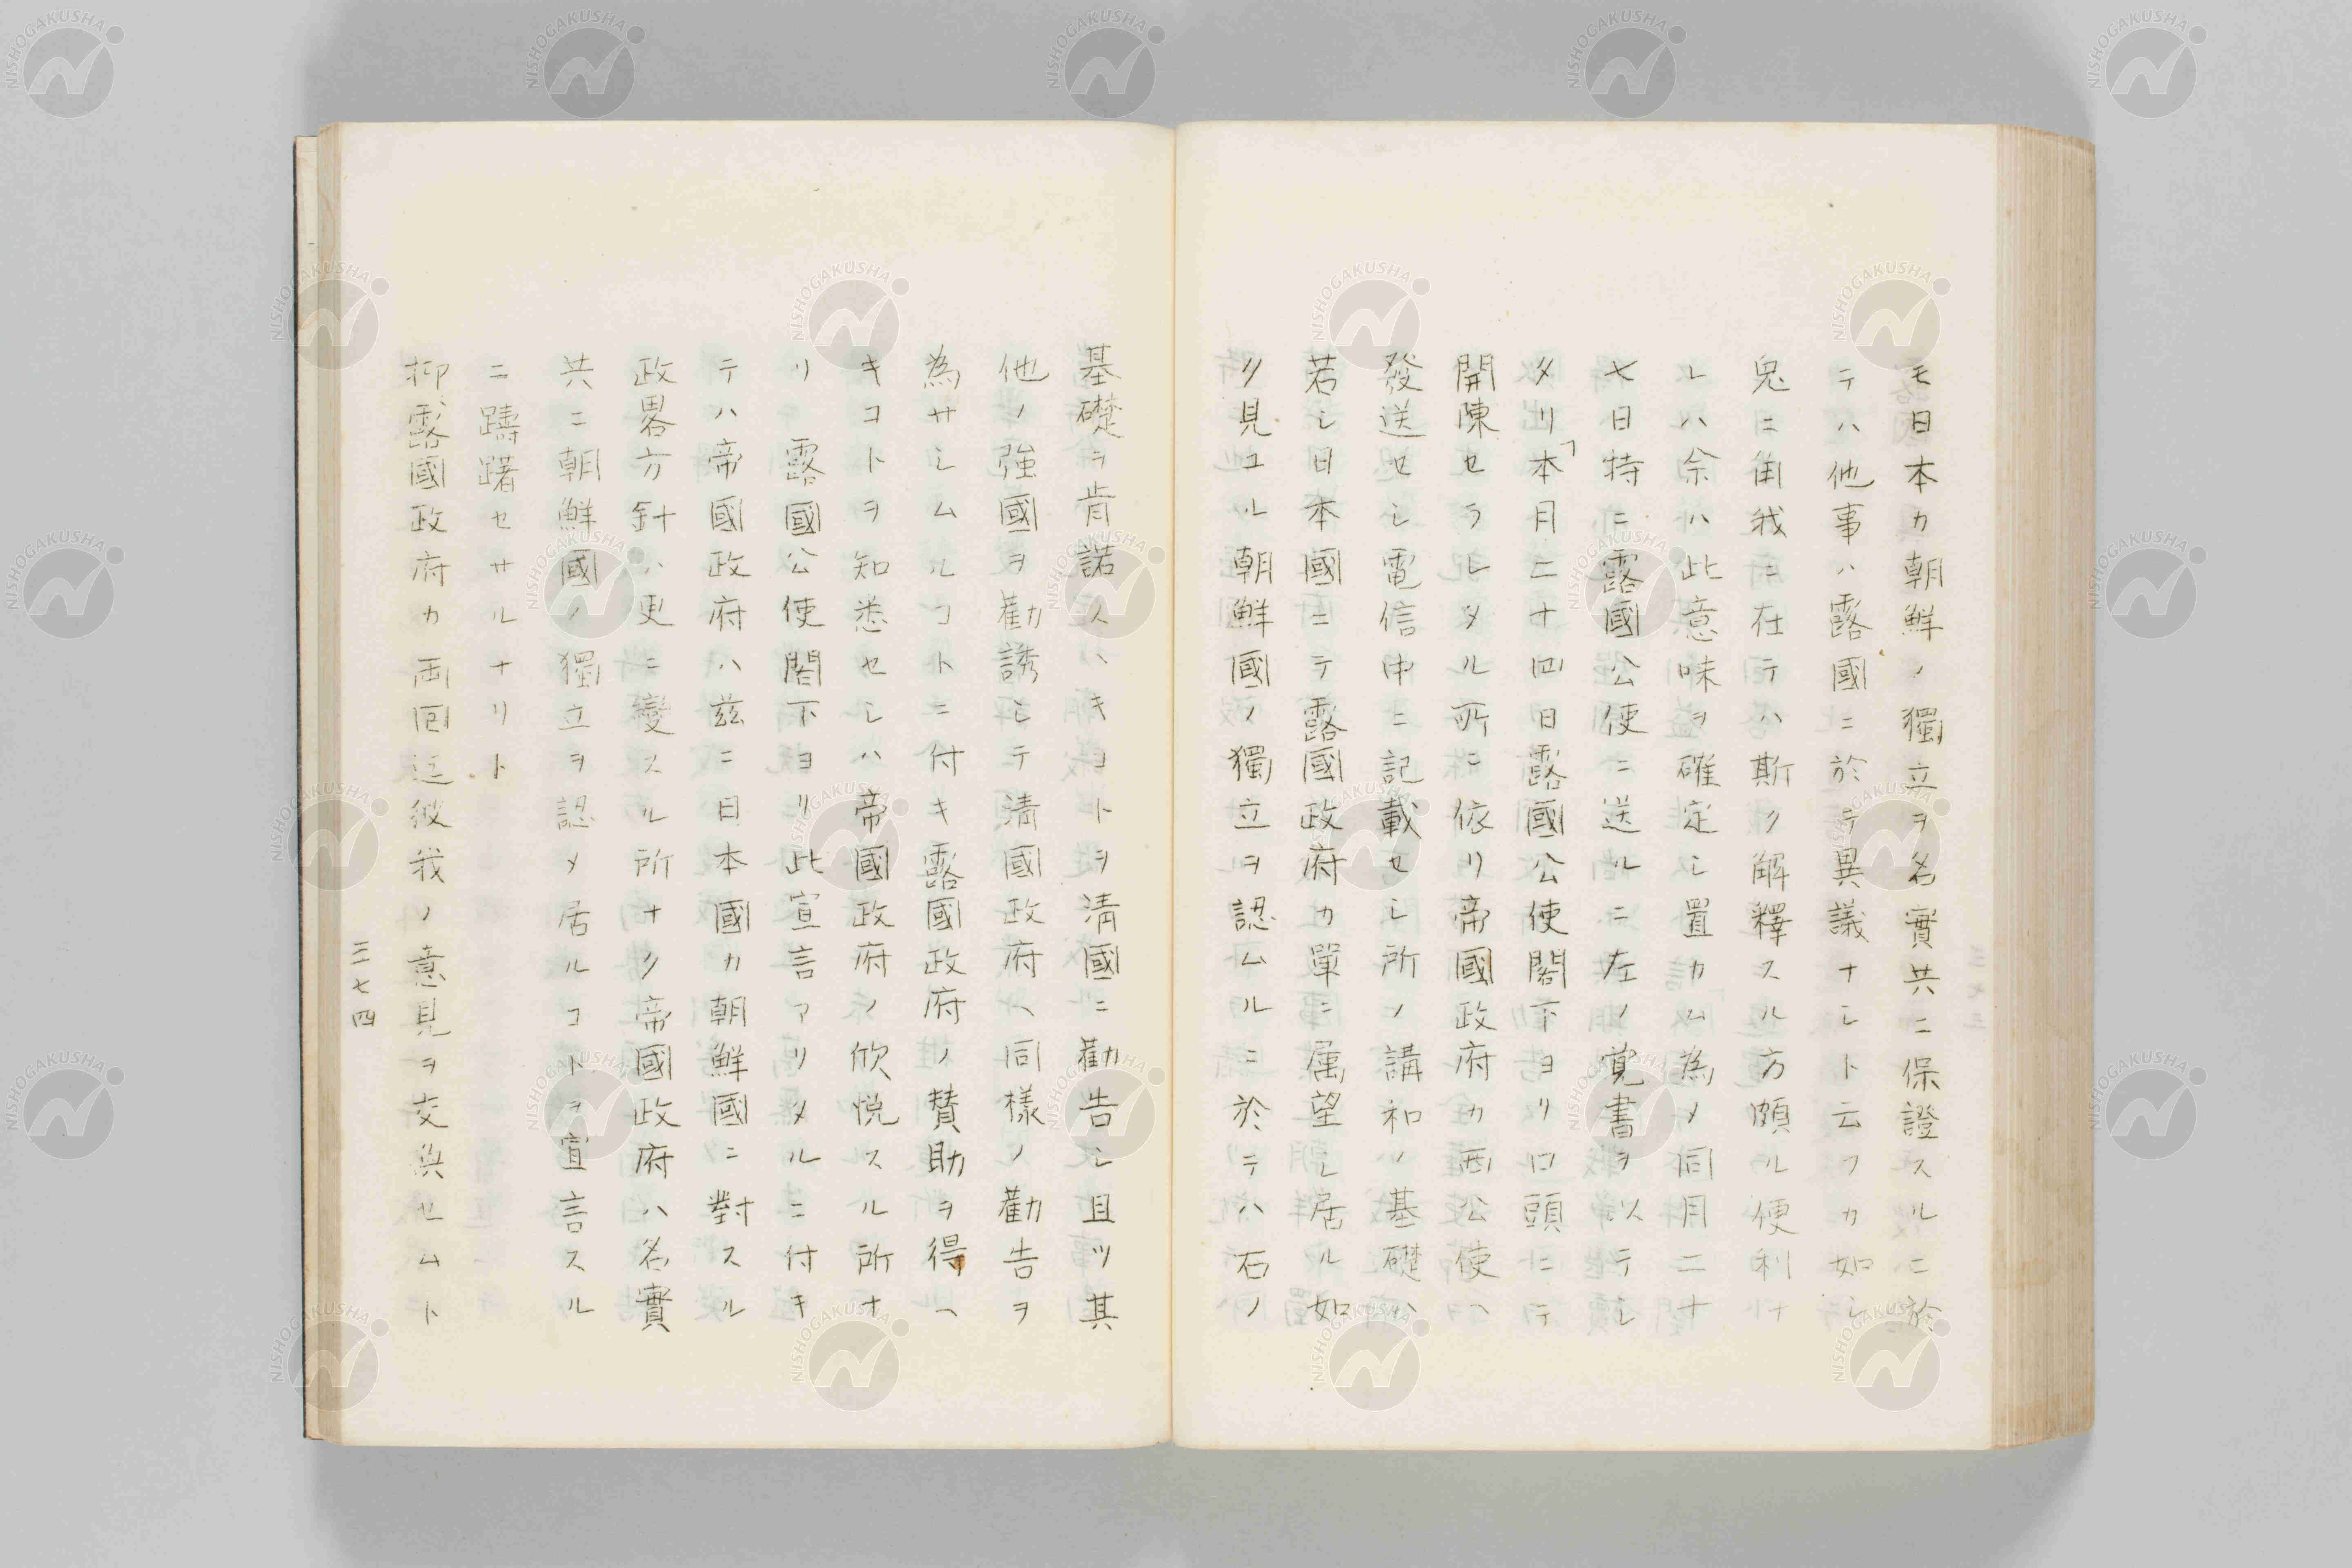 モ日本カ朝鮮ノ獨立ヲ名實共ニ保證スルニ於
テハ他事ハ露國ニ於テ異議ナシト云フカ如シ
兎ニ角我ニ在テハ斯ク解釋スル方頗ル便利ナ
レハ余ハ此意味ヲ確定シ置カム為メ同月二十
七日特ニ露國公使ニ送ルニ左ノ覚書ヲ以テシ
タリ「本月二十四日露國公使閣下ヨリ口頭ニテ
開陳セラレタル所ニ依リ帝國政府カ西公使ヘ
發送セシ電信中ニ記載セシ所ノ講和ノ基礎ハ
若シ日本國ニテ露國政府カ單ニ属望シ居ル如
ク見ユル朝鮮國ノ獨立ヲ認ムルニ於テハ右ノ
基礎ヲ肯諾スヘキコトヲ清國ニ勸告シ且ツ其
他ノ強國ヲ勸誘シテ清國政府ヘ同樣ノ勸告ヲ
為サシムルコトニ付キ露國政府ノ賛助ヲ得ヘ
キコトヲ知悉セシハ帝國政府ノ欣悦スル所ナ
リ 露國公使閣下ヨリ此宣言アリタルニ付キ
テハ帝國政府ハ茲ニ日本國カ朝鮮國ニ對スル
政畧方針ハ更ニ變スル所ナク帝國政府ハ名實
共ニ朝鮮國ノ獨立ヲ認メ居ルコトヲ宣言スル
ニ躊躇セサルナリト
抑、露國政府カ両回迄彼我ノ意見ヲ交換セムト
三七四
NISHOGAKUSHA